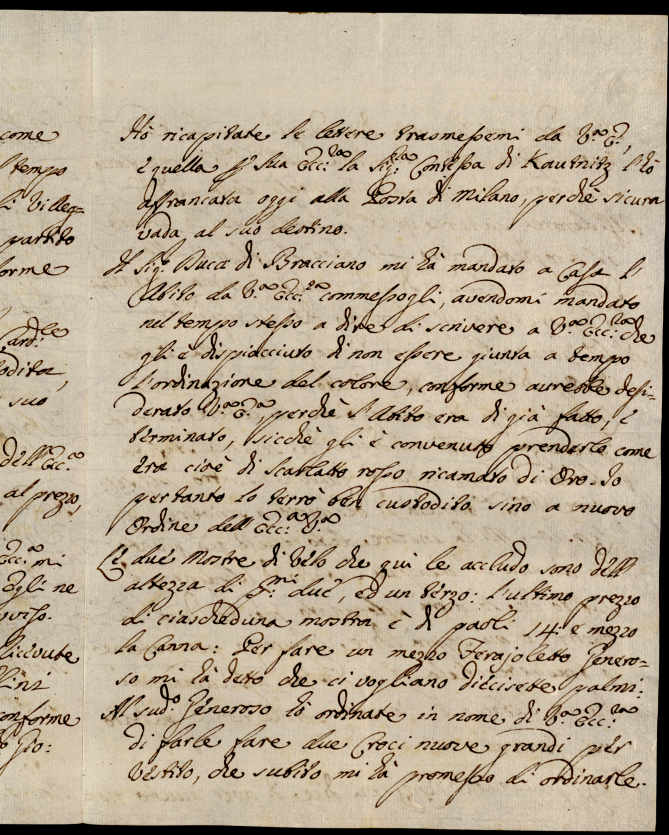 come
tempo
Villeg=
partito
forme
Card.le
odita,
suo
dell'Ecc.a
al prezzo,
Ecc.za mi
Egli ne
Ricevute
conforme
Gio:
Hò ricapitate le lettere trasmessemi da V.ra E.,
e quella p. Sua Ecc.za la Sig.ra Contessa di Kaunitz l'hò
affrancata oggi alla Posta di Milano, perche sicura
vada al suo destino.
Il Sig.r Duca di Bracciano mi hà mandato a Casa l'
Abito da V.ra Ecc.za commessogli, avendomi mandato
nel tempo stesso a dire di scrivere a V.ra Ecc.za che
gli è dispiacciuto di non essere giunta a tempo
l'ordinazione del colore, conforme aurebbe desi=
derato V.ra E.za perche l'Abito era di già fatto, e
terminato, sicchè gli è convenuto prenderlo come
era cioè di Scarlatto rosso ricamato di Oro. Io
pertanto lo terrò ben custodito sino a nuovo
Ordine dell'Ecc.za V.ra
Le due Mostre di Velo che qui le accludo sono dell'
altezza di p.mi due, ed un terzo: l'ultimo prezzo
di ciascheduna mostra è di paoli 14: e mezzo
la Canna: Per fare un mezzo Ferajoletto Genero=
so mi hà detto che ci vogliano diecisette palmi.
Al sud.o Generoso hò ordinate in nome di V.ra Ecc.za
di farle fare due Croci nuove grandi per
Vestito, che subito mi hà promesso di ordinarle.